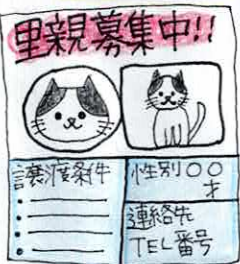 里親募集中!!
譲渡条件
性別〇〇
才
連絡先
TEL番号